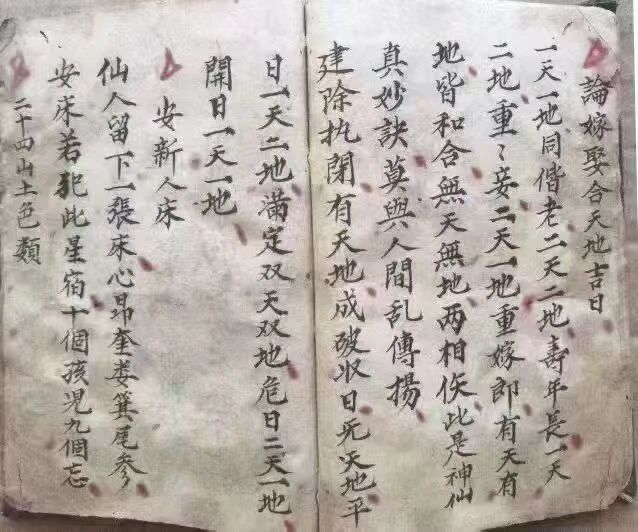 論嫁娶合天地吉日
一天一地同偕老二天二地壽年長一天
二地重〻妾二天一地重嫁郎有天有
地皆和合無天無地两相佚此是神仙
真妙訣莫與人間乱傳揚
建除执閉有天地成破收日无天地平
日一天二地滿定双天双地危日二天一地
開日一天一地
安新人床
仙人留下一張床心昂奎娄箕尾参
安床若犯此星宿十個孩児九個忘
二十四山土色類